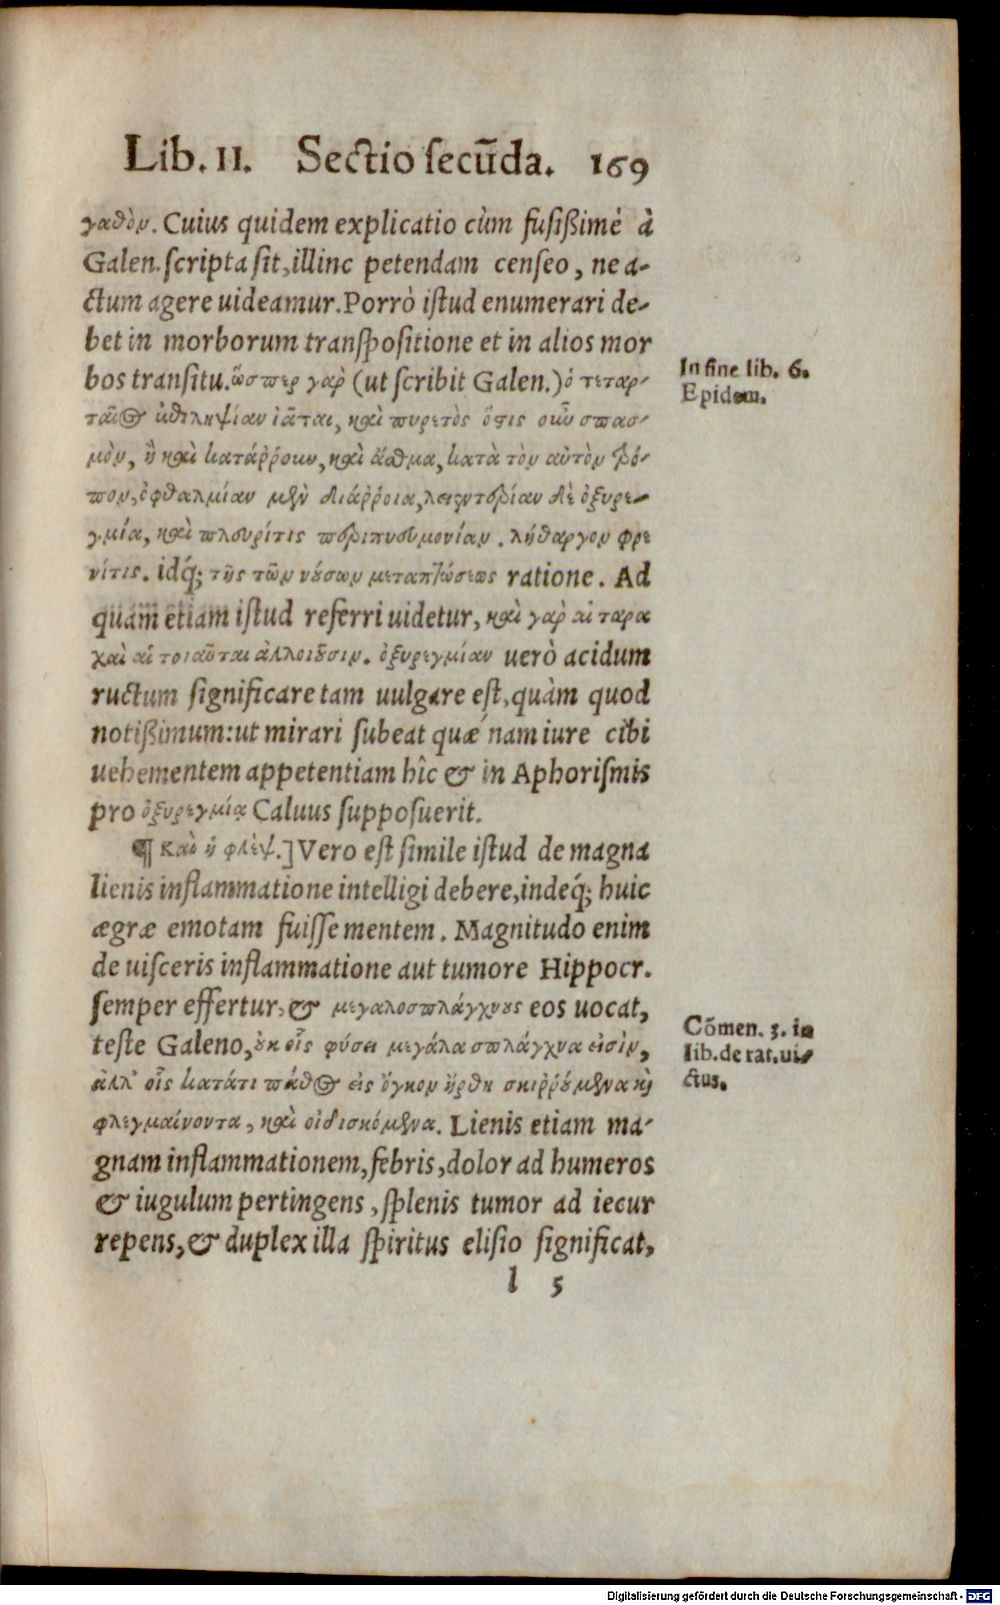 Lib. II. Sectio secũda. 169
γαθὸν. Cuius quidem explicatio cùm fusißimè à
Galen. scripta sit, illinc petendam censeo, ne a-
ctum agere uideamur. Porrò istud enumerari de-
bet in morborum transpositione et in alios mor
bos transitu. ὥσπερ γαρ̀ (ut scribit Galen.) ὁ τεταρ-
In fine lib. 6.
Epidem.
ταῖος ἐπιληψίαν ἰᾶται, καὶ πυρετὸς ὅστις οὖν σπασ-
μὸν, ἢ καὶ κατάῤῥουν, καὶ ἄσθμα, κατὰ τὸν αὐτὸν τρό-
πον, ὀφθαλμίαν μὲν διάῤῥοια, λειεντερίαν δὲ ὀξυρε-
γμία, καὶ πλευρίτις περιπνευμονίαν. λήθαργον φρε
νίτις. idq́; τῆς τῶν νόσων μεταπτώσεως ratione. Ad
quam etiam istud referri uidetur, καὶ γαρ̀ αἱ ταρα
χαὶ αἱ τοιαῦται ἀλλοιοῦσιν. ὀξυρεγμίαν uerò acidum
ructum significare tam uulgare est, quàm quod
notißimum: ut mirari subeat quæ nam iure cibi
uehementem appetentiam hîc & in Aphorismis
pro ὀξυρεγμίᾳ Caluus supposuerit.
¶ Καὶ ἡ φλὲψ.] Vero est simile istud de magna
lienis inflammatione intelligi debere, indeq́; huic
ægræ emotam fuisse mentem. Magnitudo enim
de uisceris inflammatione aut tumore Hippocr.
semper effertur, & μεγαλοσπλάγχνους eos uocat,
teste Galeno, οὐκ οἷς φύσει μεγάλα σπλάγχνα εἰσὶν,
Cõmen. 3. in
lib. de rat. ui-
ctus.
ἀλλ' οἷς κατάτι πάθος εἰς ὄγκον ἤρθη σκιῤῥούμενα καὶ
φλεγμαίνοντα, καὶ οἰδισκόμενα. Lienis etiam ma-
gnam inflammationem, febris, dolor ad humeros
& iugulum pertingens, splenis tumor ad iecur
repens, & duplex illa spiritus elisio significat,
l 5
Digitalisierung gefördert durch die Deutsche Forschungsgemeinschaft - DFG